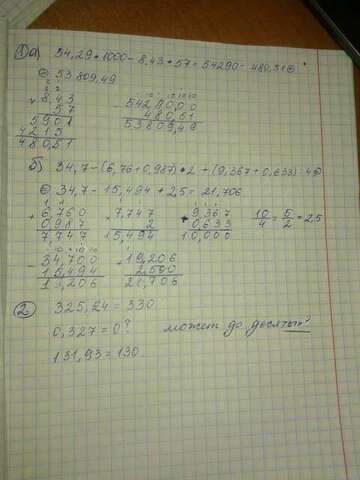 ① а) 54,29 * 1000 - 8,43 * 57 = 54290 - 480,51 ⊜
⊜ 53809,49
× 8,43
57
5901
4215
480,51
- 54290,00
480,51
53809,49
б) 34,7 - (6,76 + 0,987) * 2 + (9,367 + 0,633) : 4 ⊜
⊜ 34,7 - 15,494 + 2,5 = 21,706
+ 6,760
0,987
7,747
× 7,747
2
15,494
+ 9,367
0,633
10,000
10/4 = 5/2 = 2,5
- 34,700
15,494
19,206
+ 19,206
2,500
21,706
② 325,24 = 330
0,327 = 0? может до десятых?
131,93 = 130